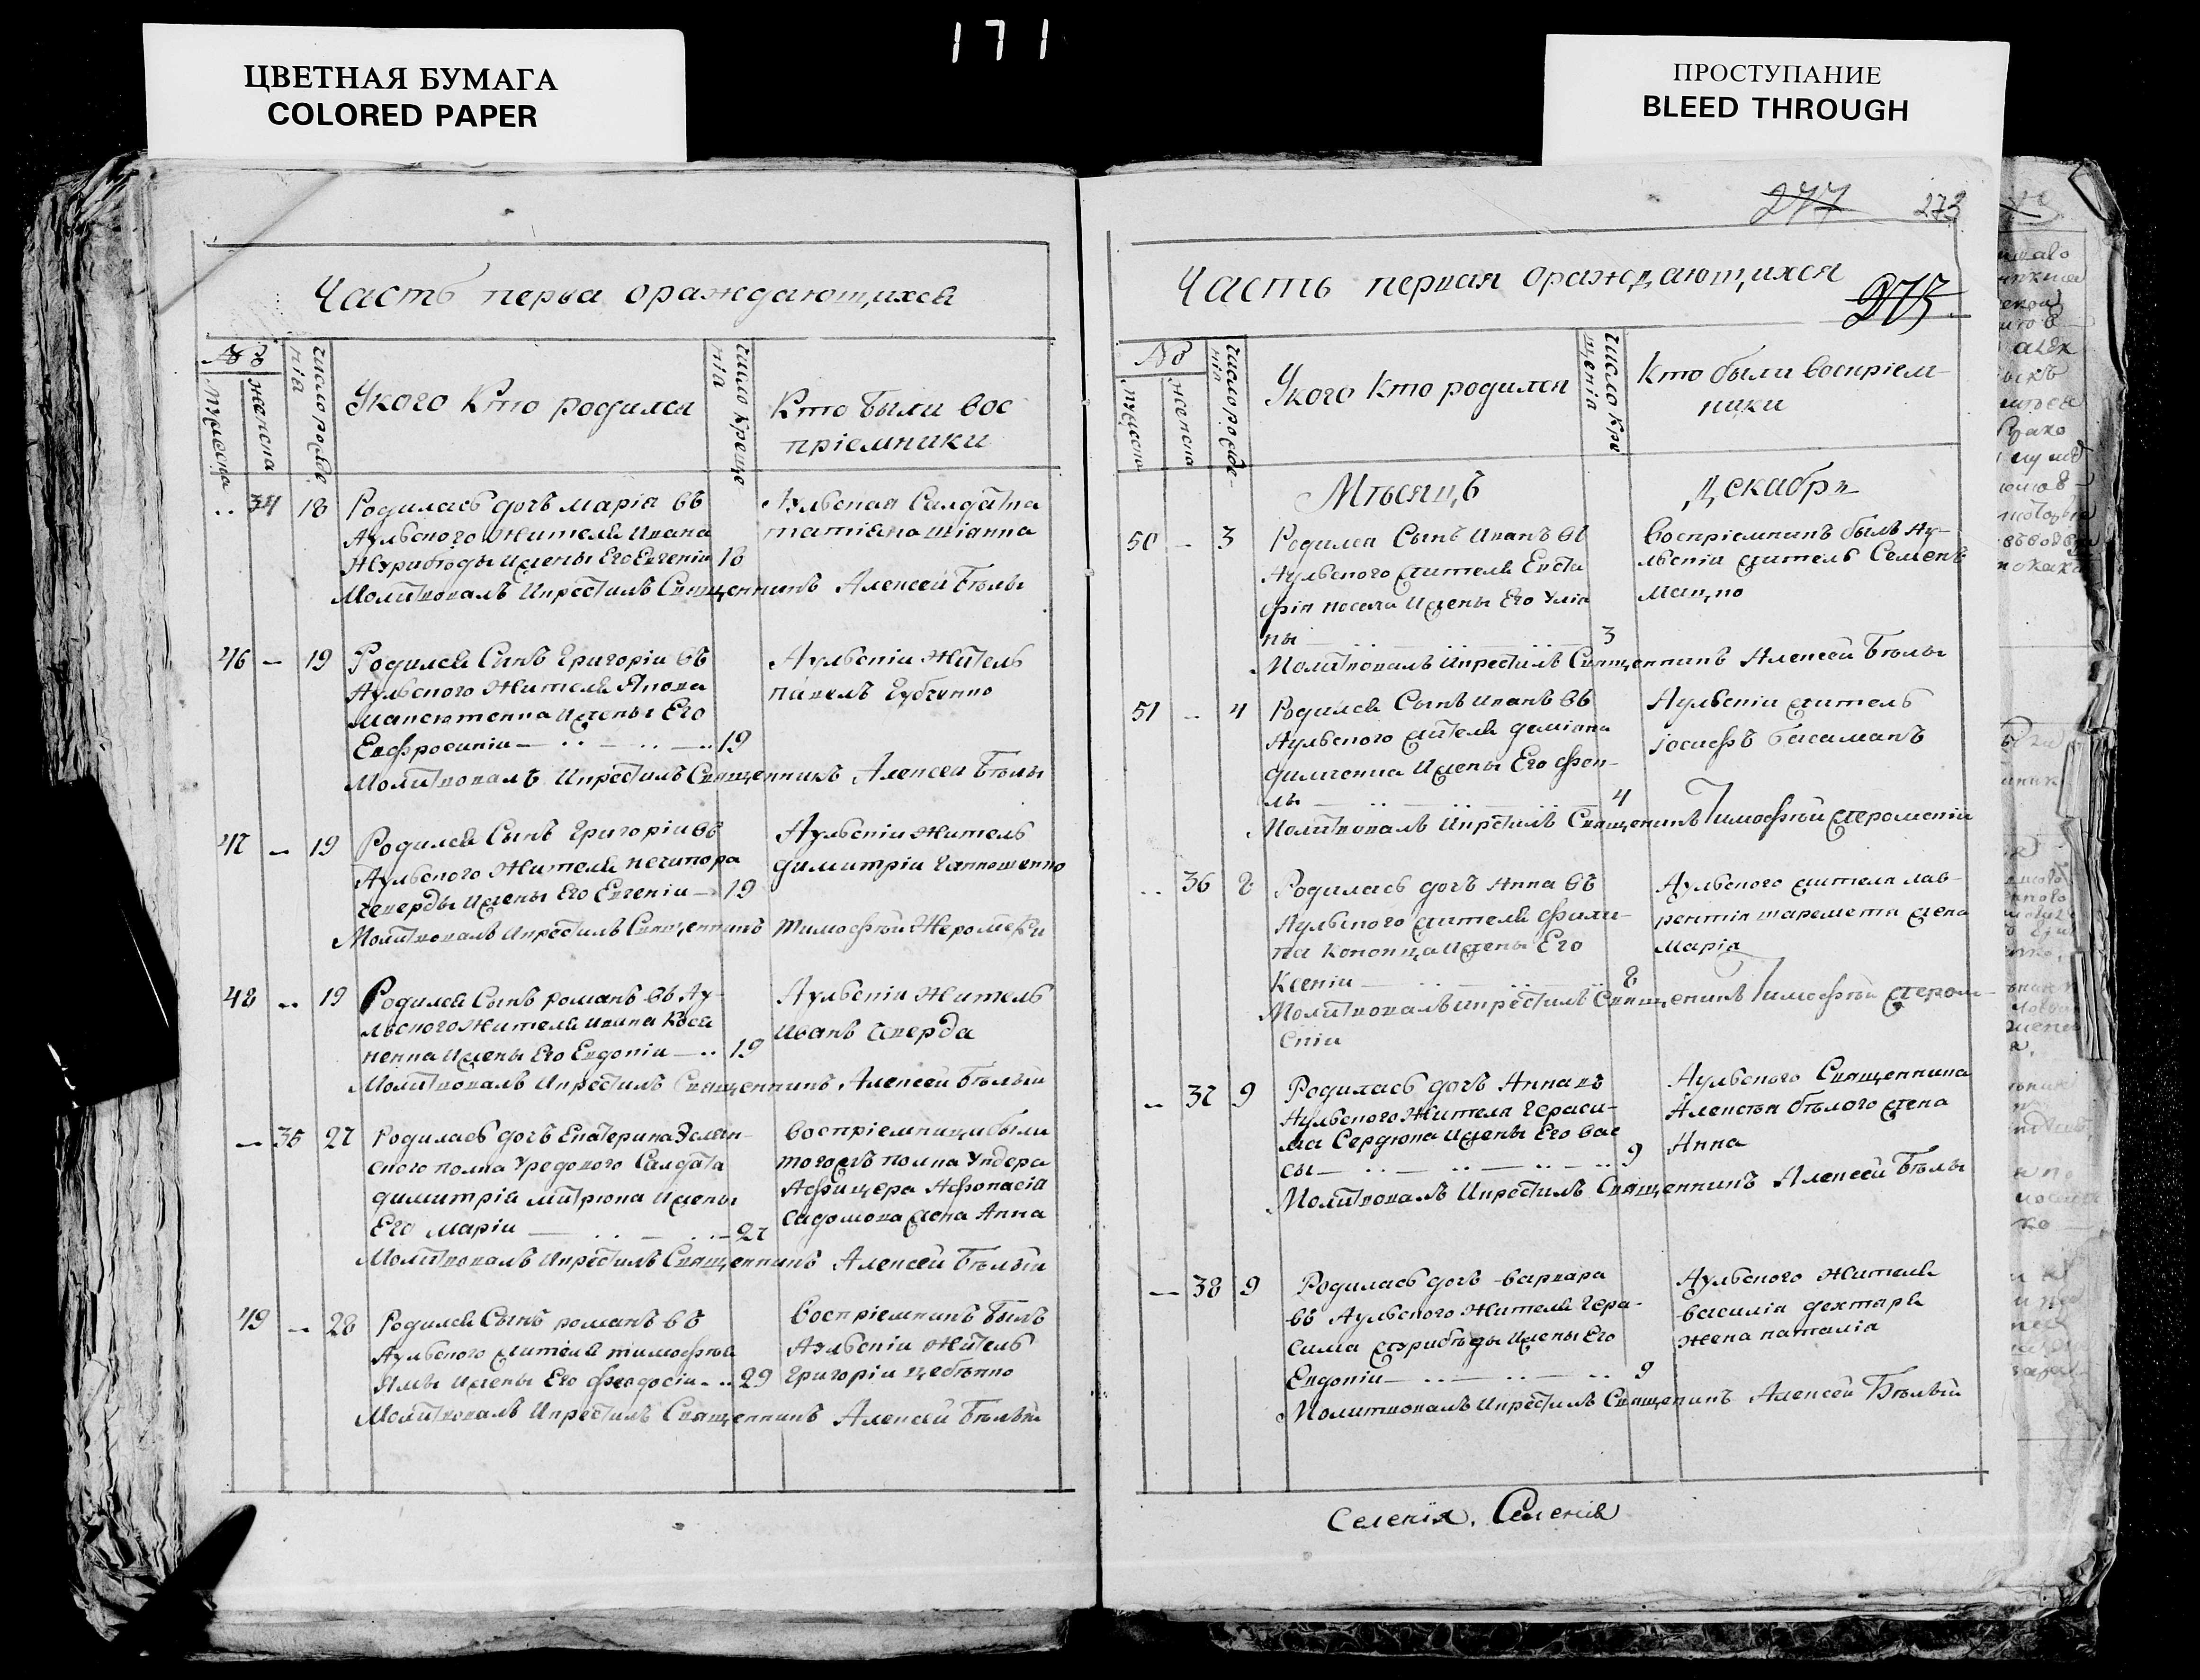 171
ЦВЕТНАЯ БУМАГА
COLORED PAPER
ПРОСТУПАНИЕ
BLEED THROUGH
Часть перва ораждающихся
№
мужеска
женска
число рожде
нія
Укого Кто родился
число креще
нія
Кто были вос
пріемники
34 18 Родилась дочь марія въ
Аульского Жителя Ивана
Журибѣды Ижены Его Евгеніи 18
Аульская Салдатка
татіана
Молитвовалъ Икрестилъ Священникъ Алексей Бѣлы
46 19 Родился Сынъ Григоріи въ
Аульского Жителя Якова
Манскженка Ижены Его
Евфросиніи 19
Аульскіи Житель
павелъ Губченко
Молитвовалъ Икрестилъ Священникъ Алексеи Бѣлы
47 19 Родился Сынъ Григоріи въ
Аульского Жителя нечипора
чеверды Ижены Его Евгеніи 19
Аульскіи Житель
димитріи Ганношенко
Молитвовалъ Икрестилъ Священникъ тимофѣй Жеромски
48 19 Родился Сынъ романъ въ Ау-
льского Жителя ивана Коса
ненка Ижены Его Евдокіи 19
Аульскіи Житель
Иванъ Чверда
Молитвовалъ Икрестилъ Священникъ Алексеи Бѣлый
35 27 Родилась дочь Екатерина
ского полка Уредового Салдата
димитрія митрюка Ижены
Его маріи 27
воспріемницы были
тогожъ полка Ундера
Афицера Афонасія
Садомова жена Анна
Молитвовалъ Икрестилъ Священникъ Алексеи Бѣлый
49 28 Родился Сынъ романъ въ
Аульского жителя тимофѣя
Ямы Ижены Его феодосіи 29
Воспріемникъ былъ
Аульскіи Житель
Григоріи цебѣнко
Молитвовалъ Икрестилъ Священникъ Алексеи Бѣлый
277
273
Часть первая ораждающихся
№
мужеска
женска
число рожде-
нія
Укого Кто родился
число кре
щенія
Кто были воспріем-
ники
Мѣсяцъ Декабрь
50 3 Родился Сынъ Иванъ въ
Аульского жителя Евста
фія носача Ижены Его Улія
ны 3
Воспріемникъ былъ Ау-
льскіи житель Семенъ
мацко
Молитвовалъ Икрестилъ Священникъ Алексей Бѣлы
51 4 Родился Сынъ Иванъ въ
Аульского жителя деміяна
димченка Ижены Его фек-
лы 4
Аульскіи житель
іосифъ басаманъ
Молитвовалъ Икрестилъ Священикъ Тимофѣй жеромскіи
36 8 Родилась дочь Анна въ
Аульского жителя фили-
па кононца Ижены Его
Ксеніи 8
Аульского жителя лав-
рентія шаремета жена
Марія
Молитвовалъ Икрестилъ Священикъ Тимофѣй жером-
скіи
37 9 Родилась дочь Анна въ
Аульского Жителя Гераси-
ма Сердюка Ижены Его вас
сы 9
Аульского Священника
Алексѣя бѣлого жена
Анна
Молитвовалъ Икрестилъ Священникъ Алексей Бѣлы
38 9 Родилась дочь варвара
въ Аульского Жителя Гера-
сима журибѣды Ижены Его
Евдокіи 9
Аульского Жителя
василія дехтаря
жена наталія
Молитвовалъ Икрестилъ Священикъ Алексей Бѣлый
Селенія. Селенія